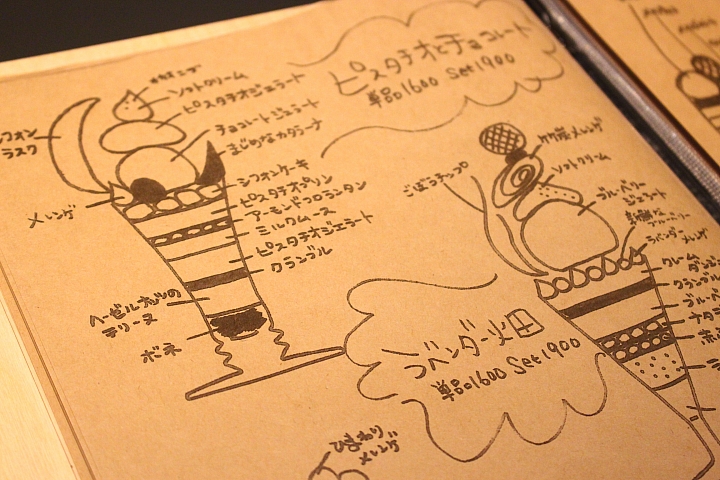 ピスタチオとチョコレート
単品1600 Set1900
ソフトクリーム
ピスタチオジェラート
チョコレートジェラート
まじめなカタラーナ
シフォン
ラスク
メレンゲ
シフォンケーキ
ピスタチオプリン
アーモンドフロランタン
ミルクムース
ピスタチオジェラート
クランブル
ヘーゼルナッツの
テリーヌ
ボネ
ラベンダー火田
単品1600 Set1900
ごぼうチップ
竹炭メレンゲ
ソフトクリーム
ブルーベリー
ジェラート
ブルーベリー
ラベンダー
メレンゲ
クレーム
クランブル
ひまわり
メレンゲ